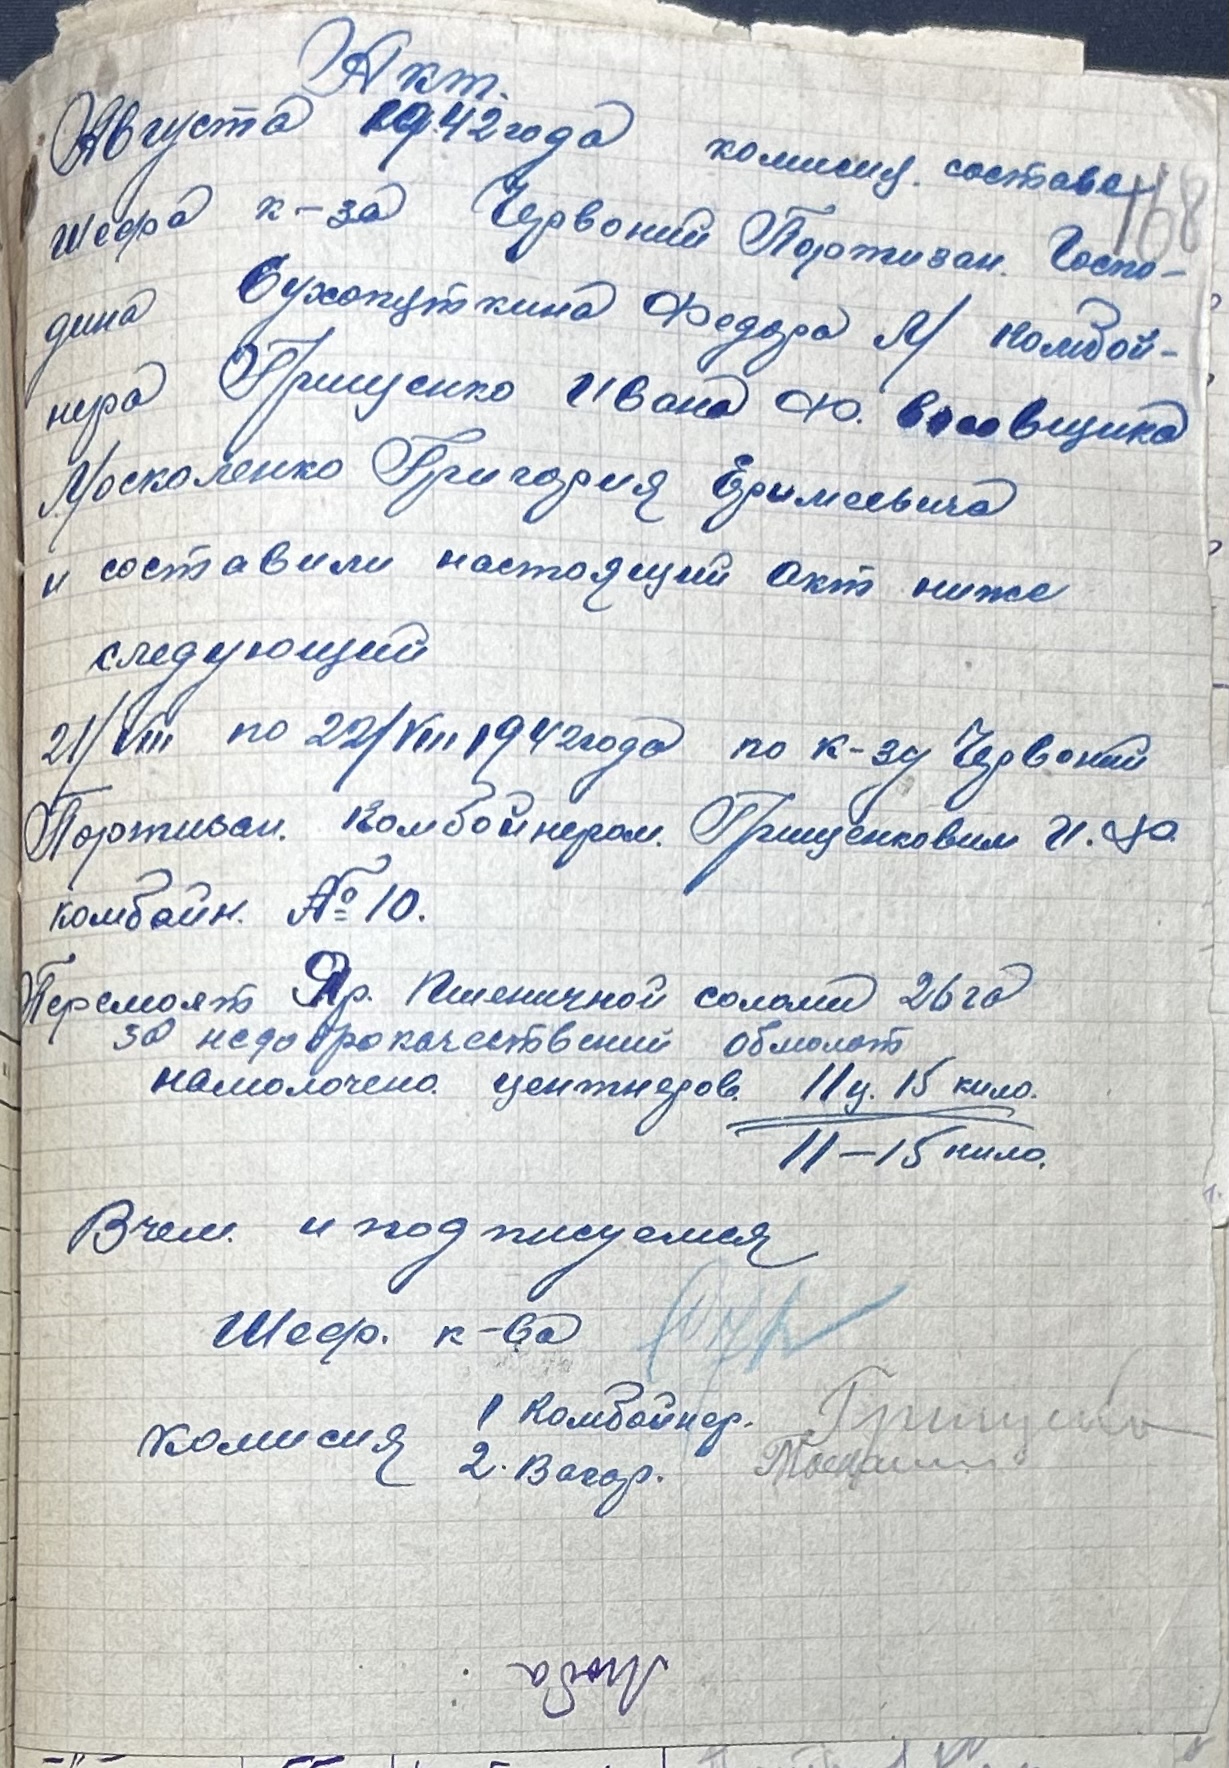 Акт.
Августа 1942 года комисия. составе
168
Шефа к-за Червоний Портизан. Госпо-
дина Сухопуткина Федора М Комбой-
нера Грищенко Ивана Ф. весовщика
Москаленко Григория Ефимеевича
и составили настоящий Акт ниже
следующий
21/VIII по 22/VIII 1942 года по к-зу Червоний
Портизан. Комбойнером. Грищенковим И. Ф.
комбайн. № 10.
Перемолт Яр. Пшеничной соломи 26 га
за недоброкачествений обмолот
намолочено центнеров. 11 ц. 15 кило.
11-15 кило.
В чем. и подписуемся
Шеф. к-ва
Комисия 1 Комбайнер. Грищенко
2. Вагар.
Люба